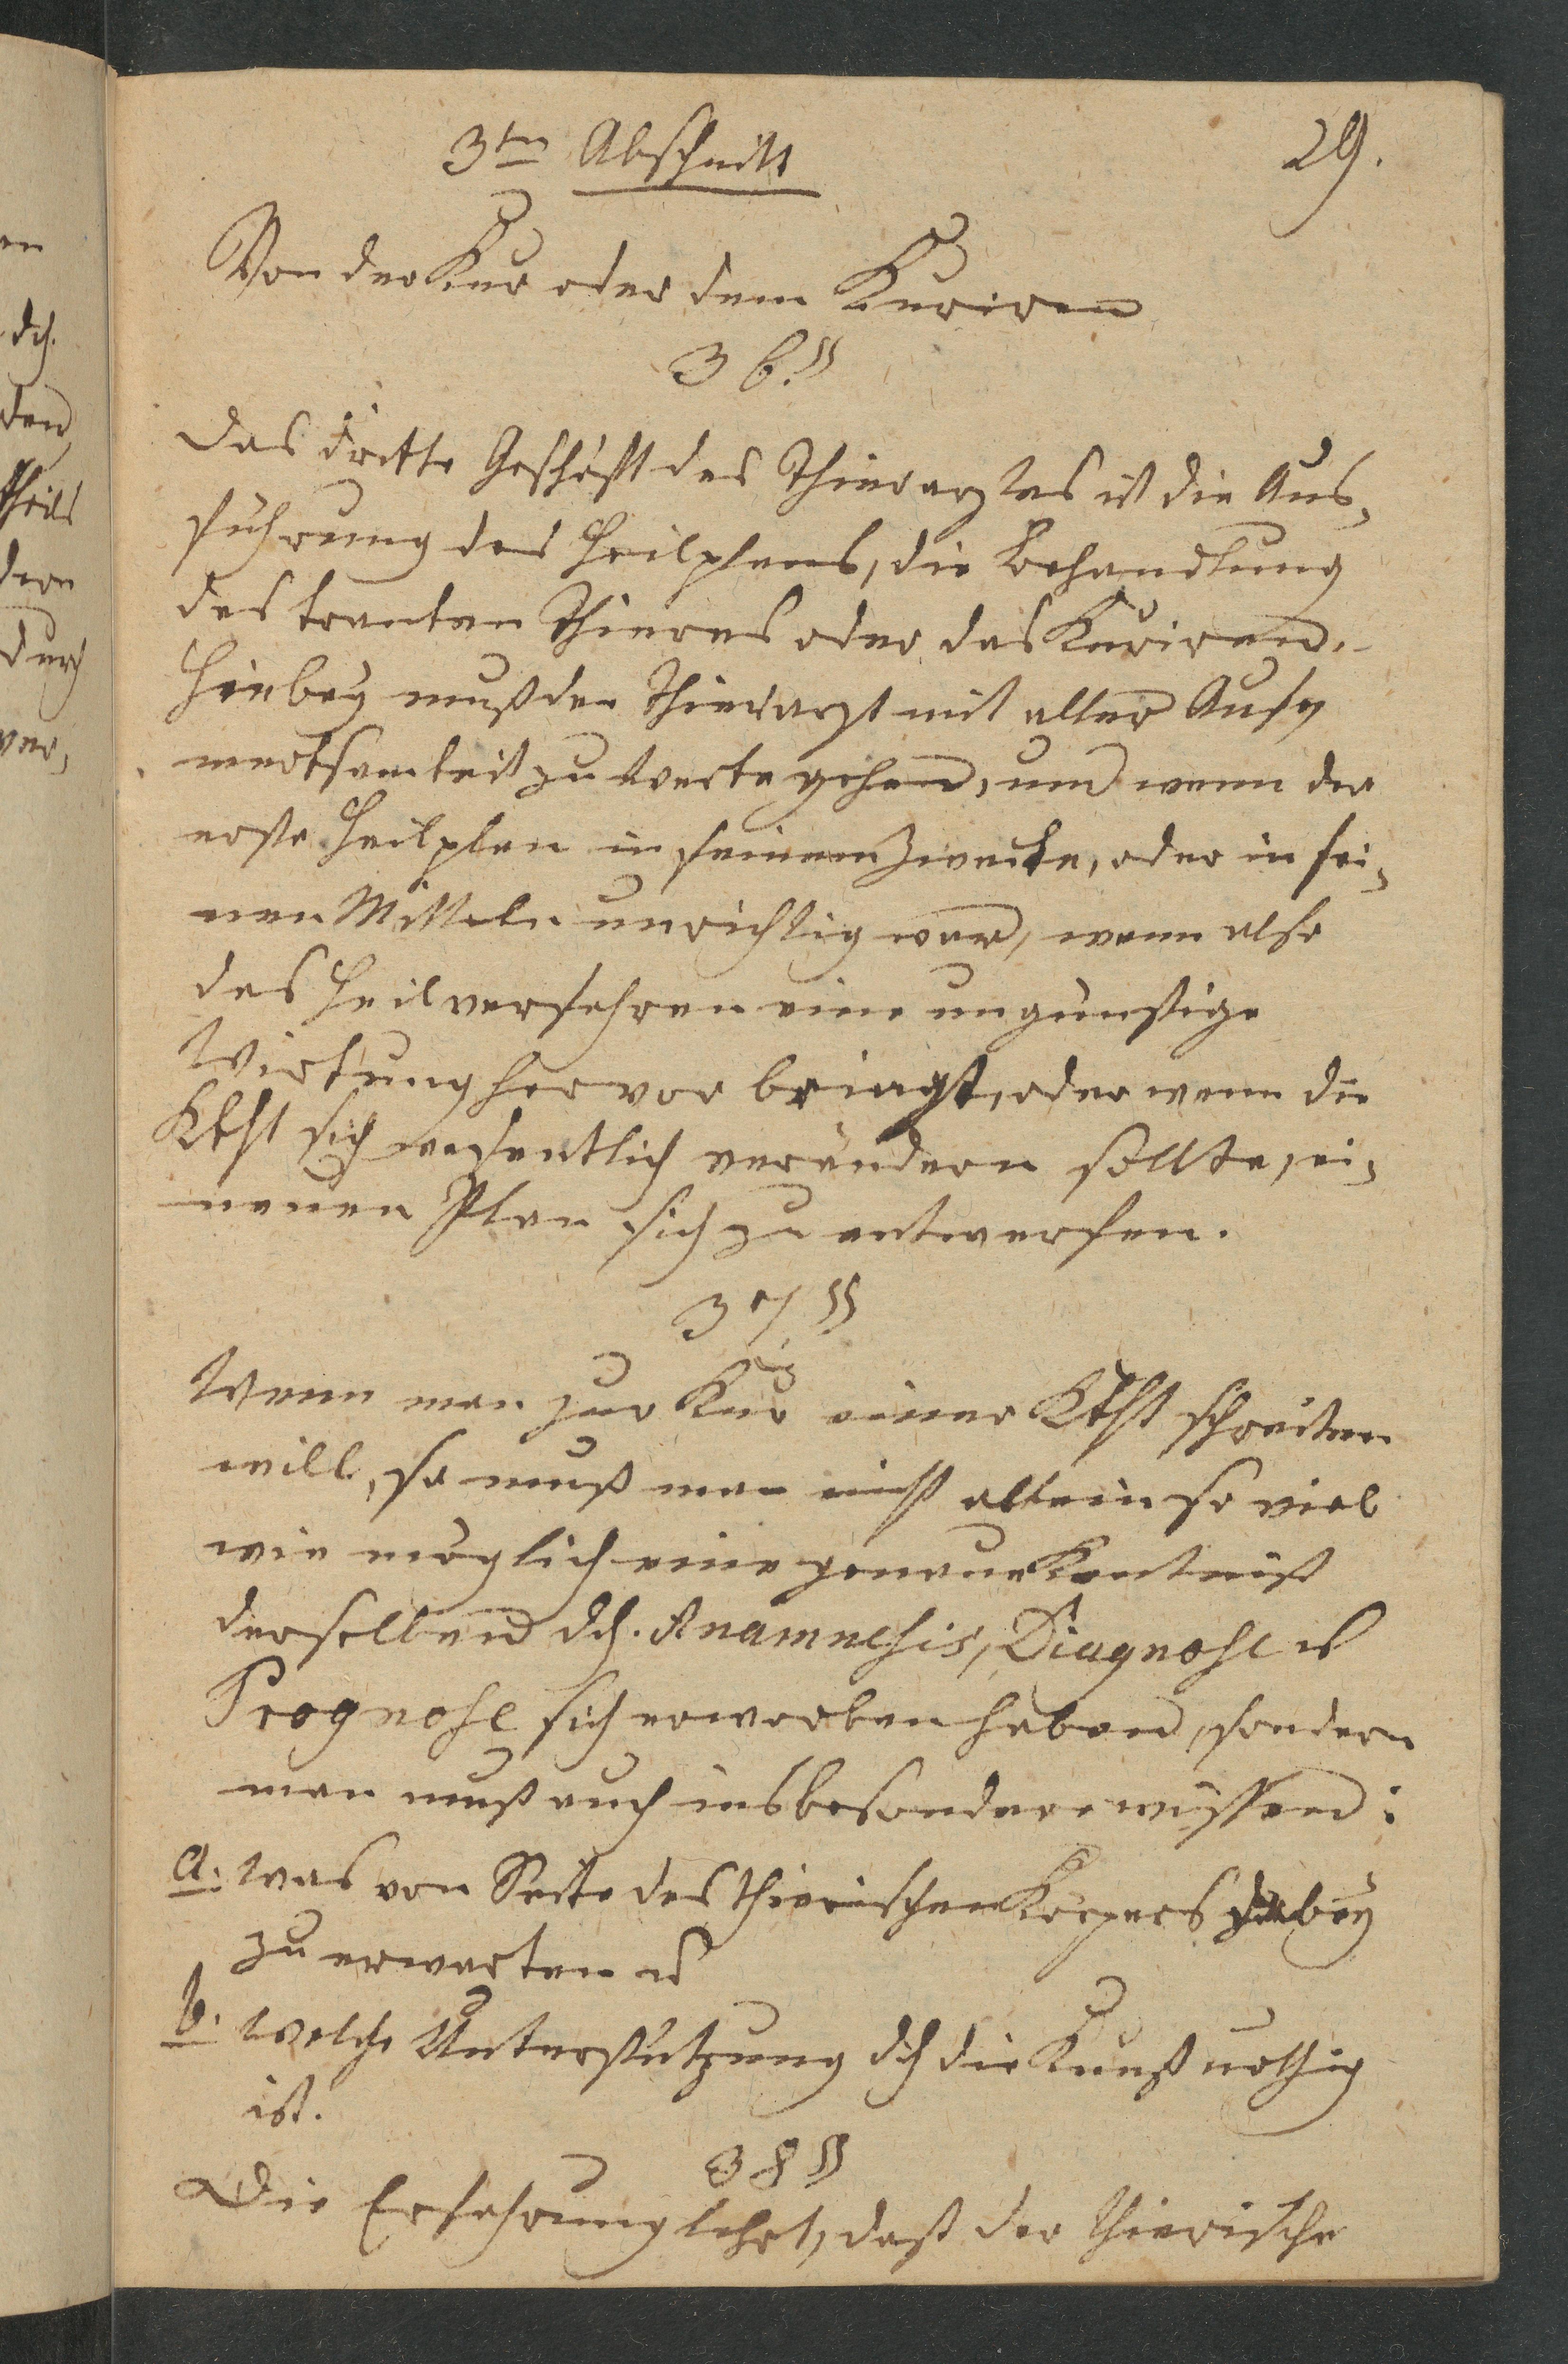 29.
3ter Abschnitt
Von der Kur oder dem Kuriren
36. §§
Das dritte Geschäft des Thierarztes ist die Aus,
führung des Heilplans, die Behandlung
des kranken Thieres oder das Kuriren.
Hiebey muß der Thierarzt mit aller Auf,
merksamkeit zu Werke gehen, und wenn der
erste Heilplan in seinem Zwecke, oder in sei,
nen Mitteln unrichtig war, wenn also
das Heilverfahren eine ungünstige
Wirkung hervor bringt, oder wenn die
Kkht sich wesentlich verändern sollte, ei,
nenen Plan sich zu entwerfen.
37 §§
Wenn man zur Kur einer Kkht schreiten
will, so muß man nicht allein so viel
wie möglich eine genaue Kentniß
derselben dch. Anamnesis, Diagnose u
Prognose sich erworben haben, sondern
man muß auch insbesondere wissen:
a. was von Seite des thierischen Körpers dabey
zu erwarten u
b. welche Unterstützung dch die Kunst nöthig
ist.
38 §§
Die Erfahrung lehrt, daß der thierische
en
dch.
den
theils
dern
durch
ver,